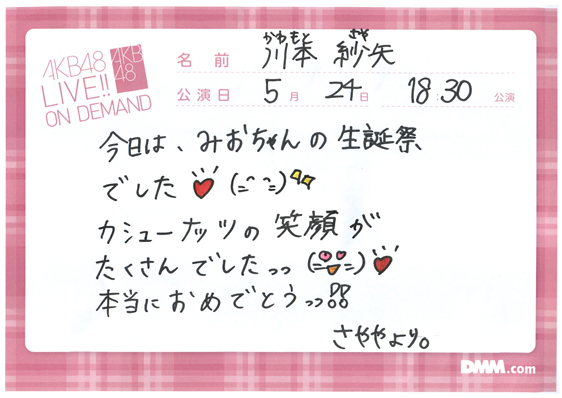 AKB48
LIVE!!
ON DEMAND
AKB
48
かわもと さや
名前 川本 紗矢
公演日 5月 24日 18:30 公演
今日は、みおちゃんの生誕祭
でした (=^^=)
カシューナッツの笑顔が
たくさんでしたっっ (=  =)
本当におめでとうっっ!!
さややより。
DMM.com